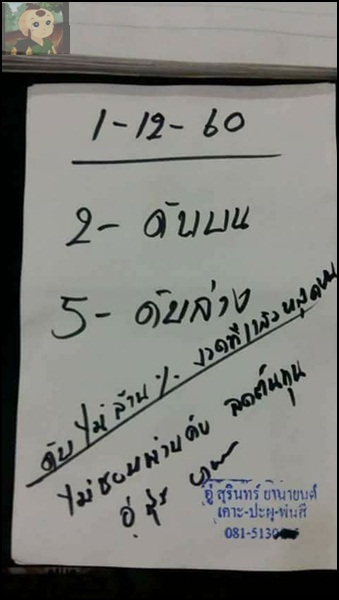 1-12-60
2- ดับบน
5- ดับล่าง
ดับไม่ล้าน % งวดที่แล้วหลุดบน
ไม่ชอบผ่านครับ ลดต้นทุน
อู่
อู่ สุรินทร์ ยานายนต์
เคาะ-ปะผุ-พ่นสี
081-5130